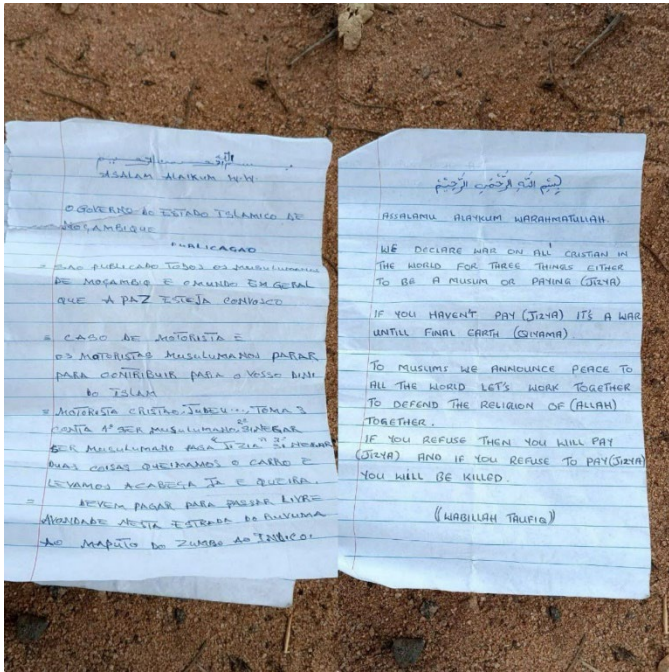 بسم الله الرحمن الرحيم
ASALAM ALAIKUM W.W
O GOVERNO DO ESTADO ISLAMICO DE
MOÇAMBIQUE
PUBLICAÇAO
= SAO PUBLICADO TODOS OS MUSULUMANOS
DE MOÇAMBIQ E O MUNDO EM GERAL
QUE A PAZ ESTEJA CONVOSCO
= CASO DE MOTORISTA E
OS MOTORISTAS MUSULUMANOS PARAR
PARA CONTRIBUIR PARA O VOSSO DINI
DO ISLAM
= MOTORISTA CRISTAO, JUDEU... TOMA 3
CONTA 1º SER MUSULUMANA 2º SI NEGAR
SER MUSULUMANO PAGA "JIZIA" 3º SI NEGAR
DUAS COISAS QUEIMAMOS O CARRO E
LEVAMOS A CABEÇA JA E QUEIRA.
= DEVEM PAGAR PARA PASSAR LIVRE
AVONDADE NESTA ESTRADA DO RUVUMA
AO MAPUTO DO ZUMBO AO INDICO:
بِسْمِ اللهِ الرَّحْمَنِ الرَّحِيْمِ
ASSALAMU ALAYKUM WARAHMATULLAH.
WE DECLARE WAR ON ALL CRISTIAN IN
THE WORLD FOR THREE THINGS EITHER
TO BE A MUSLIM OR PAYING (JIZYA)
IF YOU HAVEN'T PAY (JIZYA) IT'S A WAR
UNTILL FINAL EARTH (QIYAMA)
TO MUSLIMS WE ANNOUNCE PEACE TO
ALL THE WORLD LET'S WORK TOGETHER
TO DEFEND THE RELIGION OF (ALLAH)
TOGETHER.
IF YOU REFUSE THEN YOU WILL PAY
(JIZYA) AND IF YOU REFUSE TO PAY (JIZYA)
YOU WILL BE KILLED.
((WABILLAH TAUFIQ))